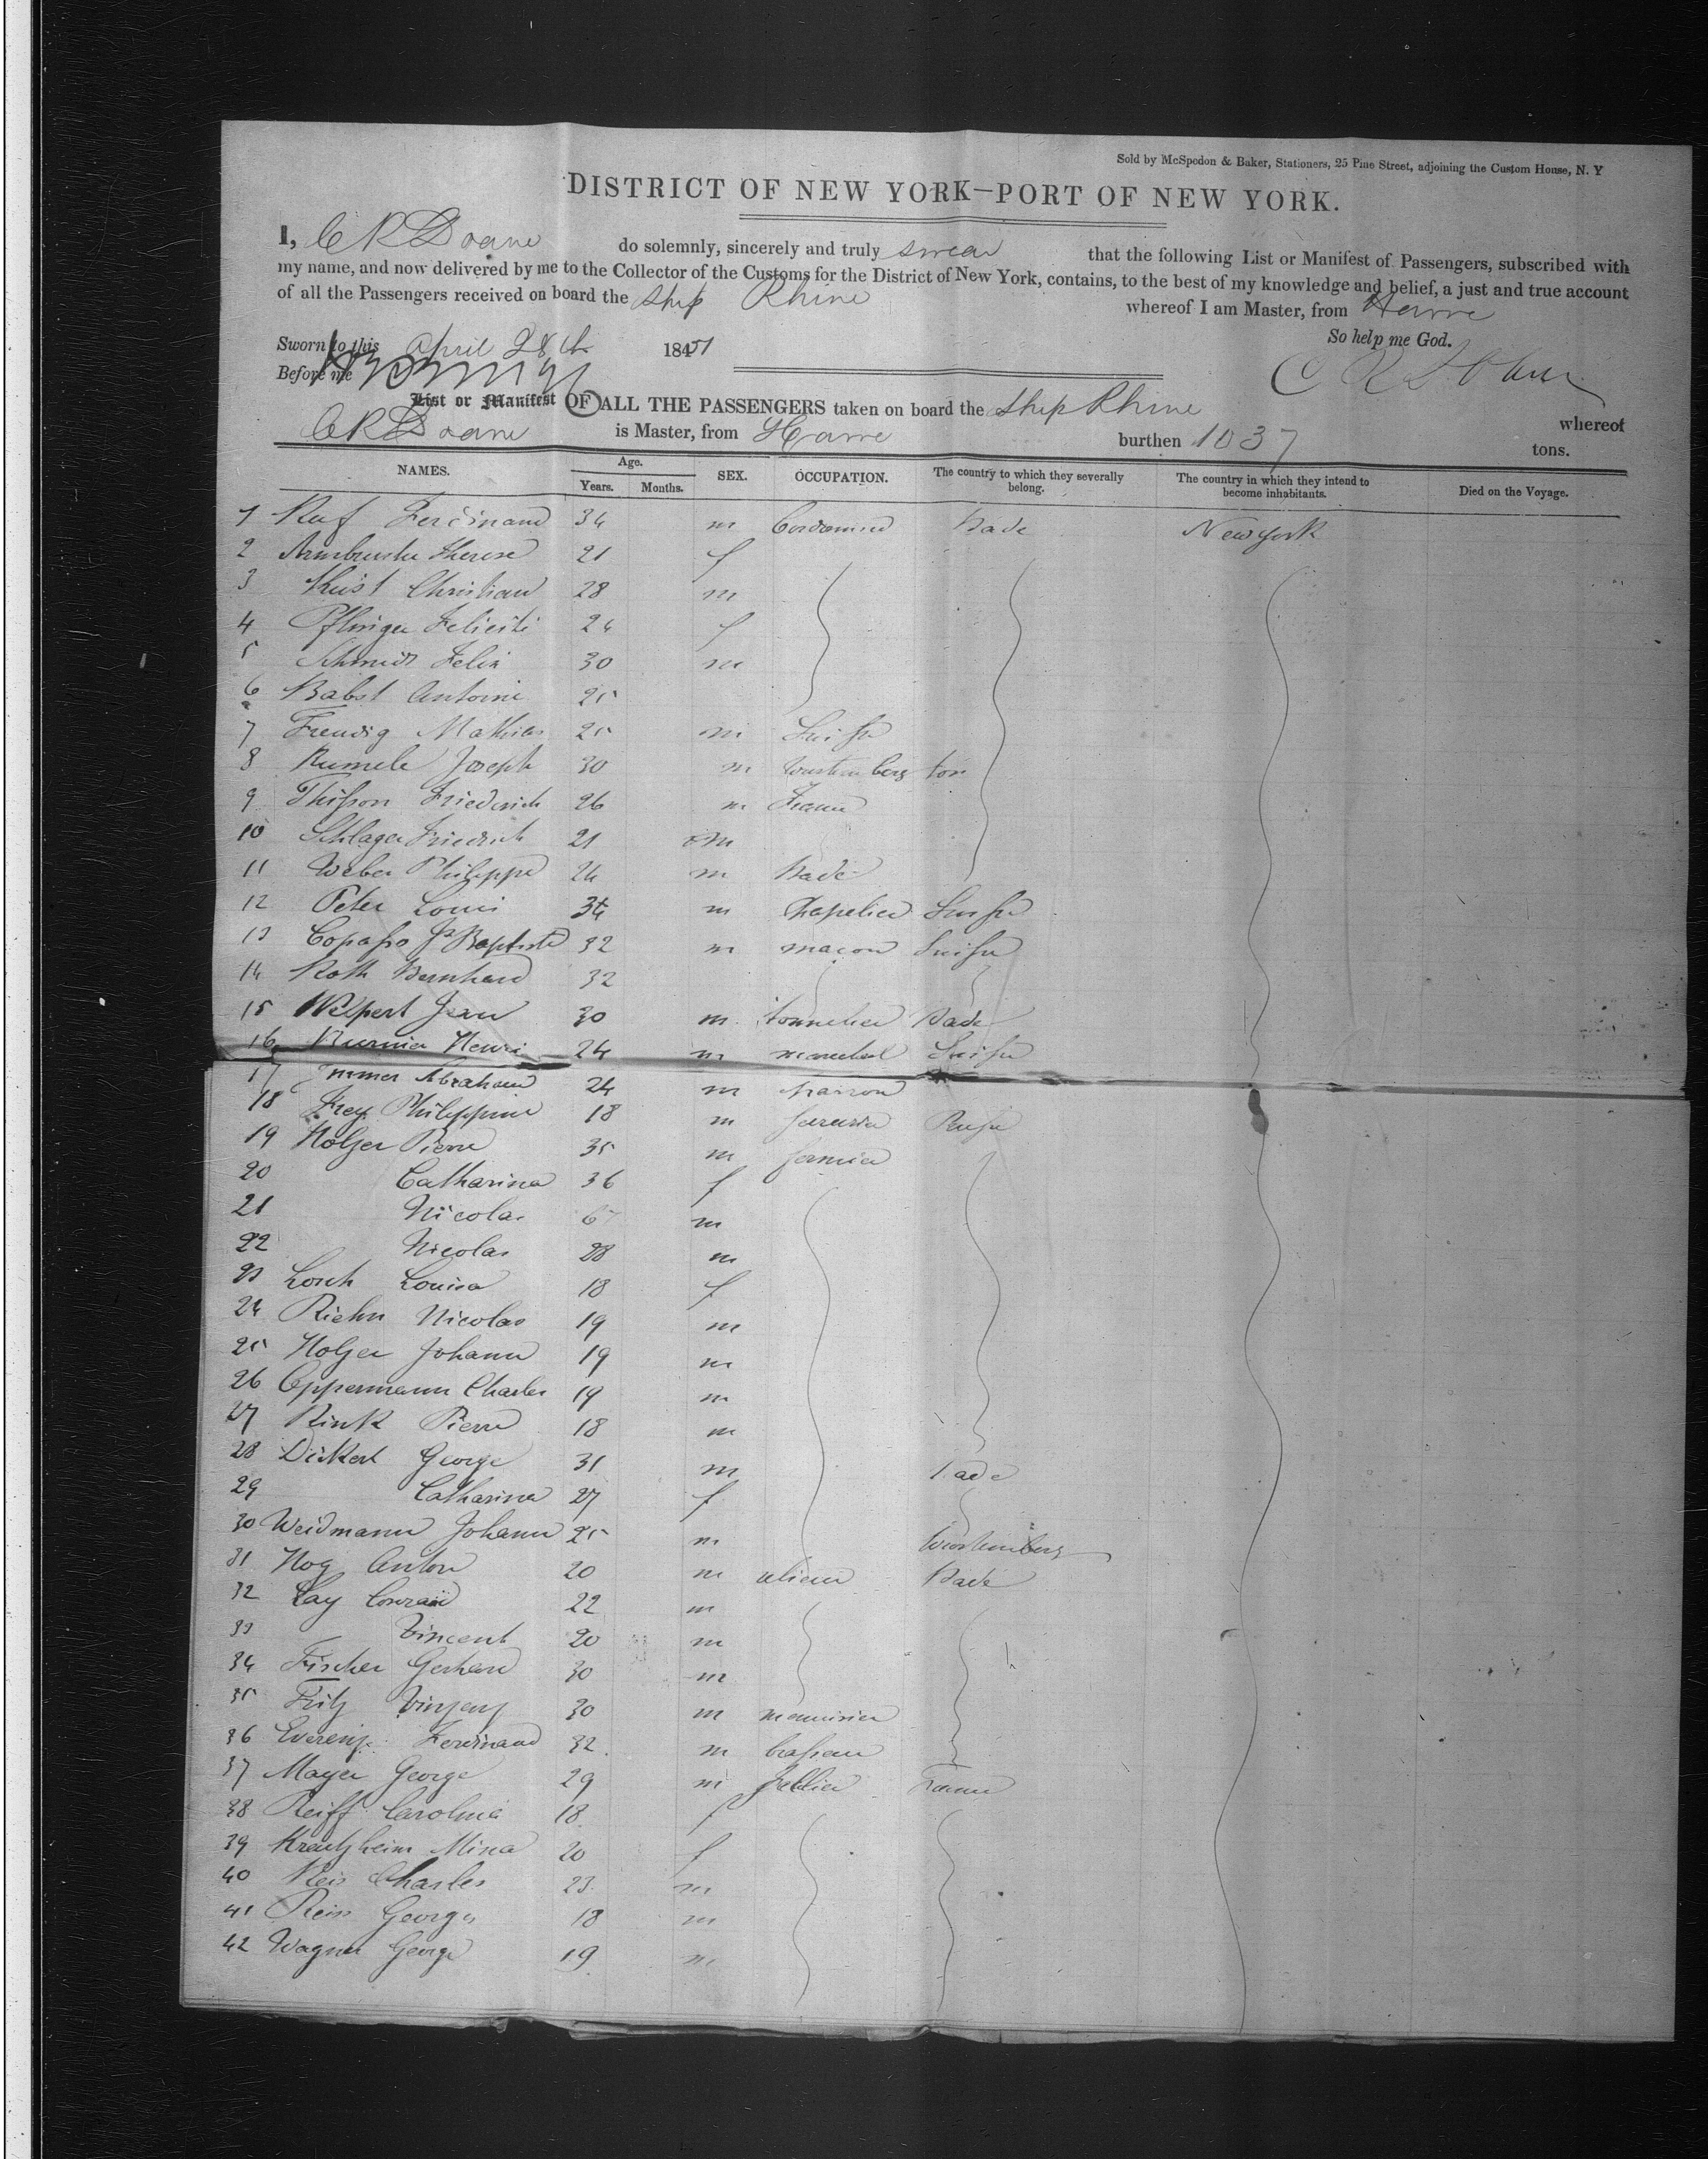 Sold by McSpedon & Baker, Stationers, 25 Pine Street, adjoining the Custom House, N. Y
DISTRICT OF NEW YORK—PORT OF NEW YORK.
I, C R Doane do solemnly, sincerely and truly swear that the following List or Manifest of Passengers, subscribed with
my name, and now delivered by me to the Collector of the Customs for the District of New York, contains, to the best of my knowledge and belief, a just and true account
of all the Passengers received on board the Ship Rhine whereof I am Master, from Havre
Sworn to this April 28th 1851 So help me God.
Before me C R Doane
List or Manifest OF ALL THE PASSENGERS taken on board the Ship Rhine whereof
C R Doane is Master, from Havre burthen 1037 tons.
NAMES. Age. Years. Months. SEX. OCCUPATION. The country to which they severally belong. The country in which they intend to become inhabitants. Died on the Voyage.
1 Ruf Ferdinand 34 m Bade New York
2 Armbruster Therese 21 f
3 Christian 28 m
4 Pflinger Feliciti 24 f
5 Schmidt Felix 30 m
6 Babst Antoine 25
7 Freudig Mathias 25 m Suisse
8 Rumele Joseph 30 m Wurtemberg
9 Thisson Friederich 26 m France
10 Schlager Friedrich 21 m
11 Weber Philippe 24 m Bade
12 Peter Louis 34 m Chapelier Suisse
13 Copasso Jn Baptiste 32 m macon Suisse
14 Roth Bernhard 32
15 Welpert Jean 30 m tonnelier Bade
16 Burnier Henri 24 m marechal Suisse
17 Immer Abraham 24 m
18 Frey Philippine 18 m Prusse
19 Holzer Pierre 35 m fermier
20 Catharina 36 f
21 Nicolas 6 m
22 Nicolas 28 m
23 Louisa 18 f
24 Riehn Nicolas 19 m
25 Holzer Johann 19 m
26 Oppermann Charles 19 m
27 Rink Pierre 18 m
28 Dickert George 31 m Bade
29 Catharina 27 f
30 Weidmann Johann 25 m Wurtemberg
31 Hog Anton 20 m Bade
32 Lay Conrad 22 m
33 Vincent 20 m
34 Fischer Gerhard 30 m
35 Fritz Vinzenz 30 m menuisier
36 Ferdinand 32 m brasseur
37 Mayer George 29 m sellier France
38 Reiff Carolina 18 f
39 Kreutzheim Mina 20 f
40 Reis Charles 23 m
41 Reis George 18 m
42 Wagner George 19 m